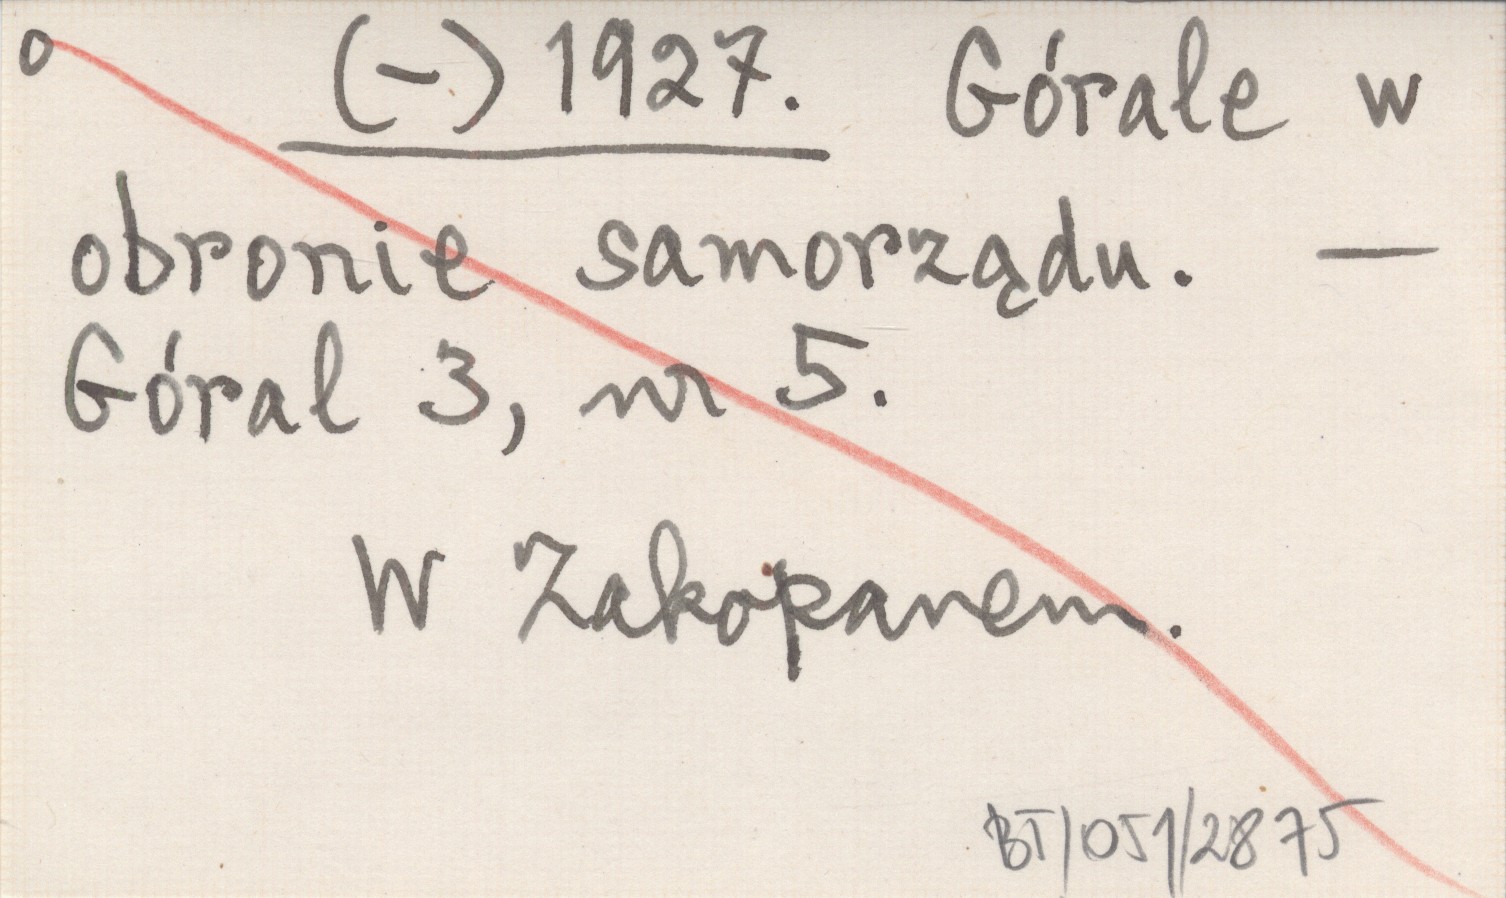 o (-) 1927. Górale w
obronie samorządu. —
Góral 3, nr 5.
W Zakopanem.
BT/051/2875